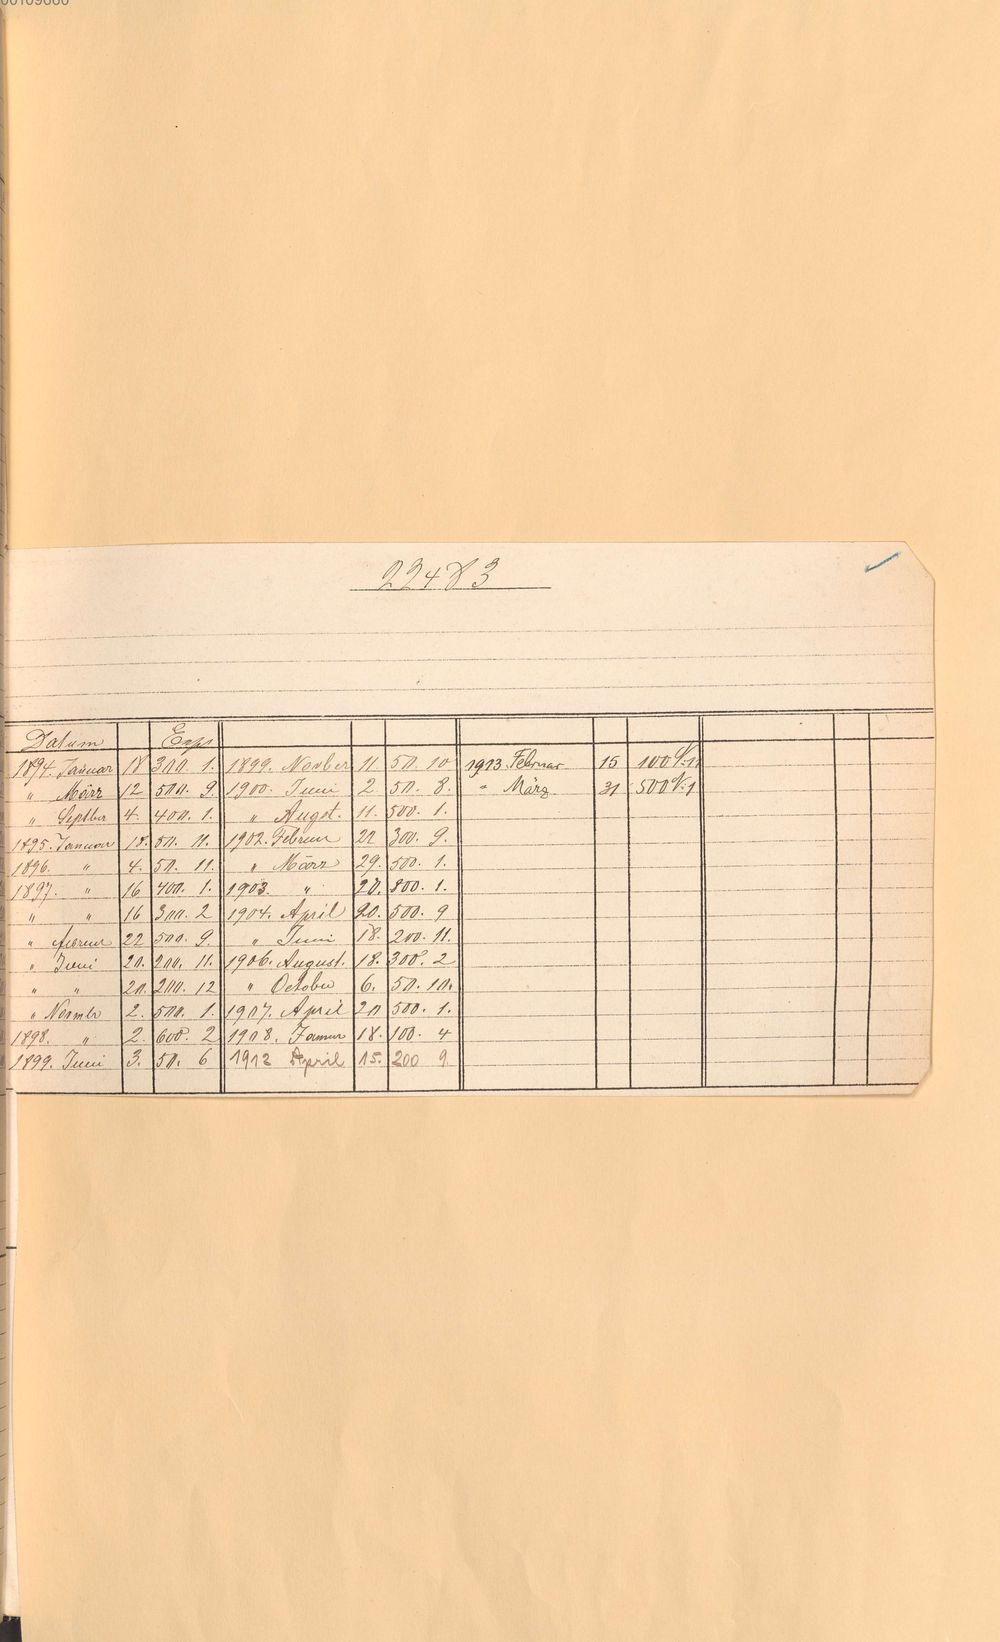 22483
Datum Exp.
1894. Januar 18 300. 1. 1899. Novber 11 50. 10 1913 Februar 15 100 N. 11
" März 12 500. 9. 1900. Juni 2. 50. 8. " März 31 500 N. 1
" Septber 4. 400. 1. " Augst. 11. 500. 1.
1895. Januar 18. 50. 11. 1902. Februar 300. 9.
1896. " 4. 50. 11. " März 29. 500. 1.
1897. " 16 400. 1. 1903. " 800. 1.
" " 16 300. 2 1904. April 20. 500. 9
" 22 500. 9. " Juni 18. 200. 11.
" Juni 20. 200. 11. 1906. August. 18. 300. 2
" " 20. 200. 12 " October 6. 50. 10.
" Novmbr 2. 500. 1. 1907. April 20 500. 1.
1898. " 2. 600. 2 1908. Januar 18. 100. 4
1899. Juni 3. 50. 6 1912 April 15. 200 9